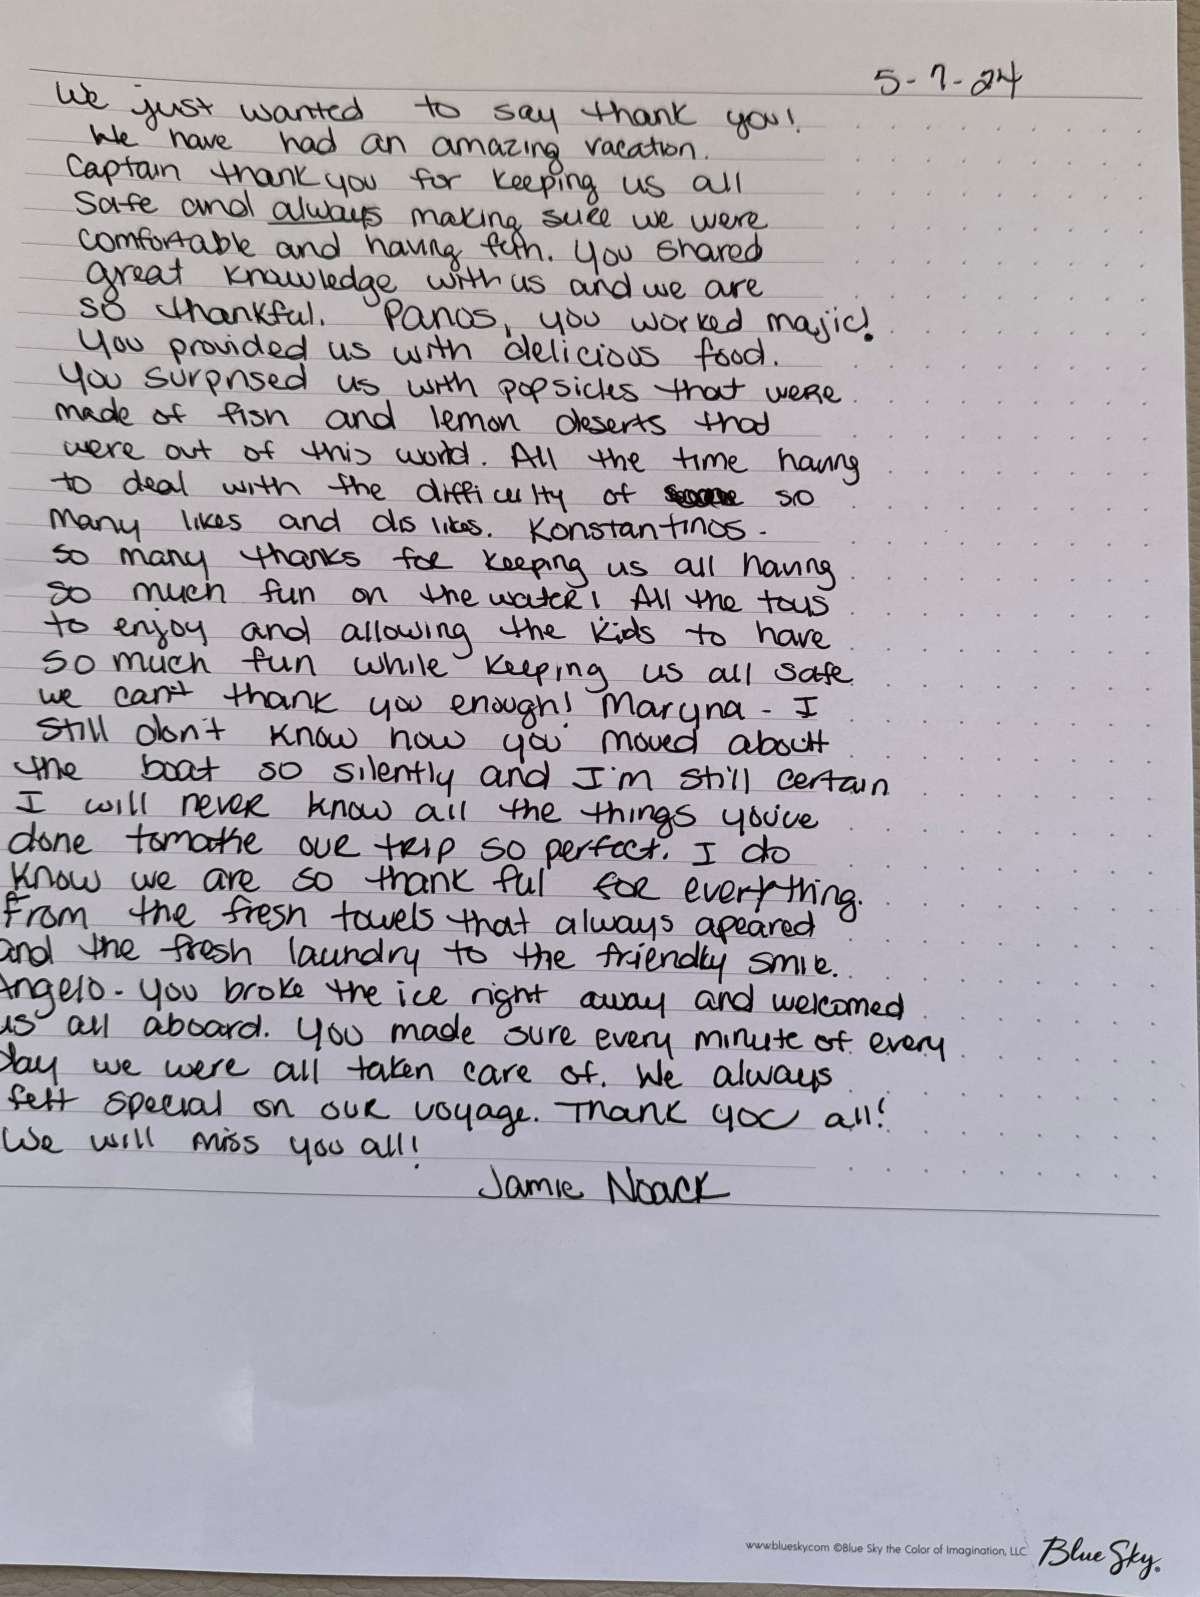 5-7-24
We just wanted to say thank you!
We have had an amazing vacation.
Captain thank you for keeping us all
safe and always making sure we were
comfortable and having fun. You shared
great knowledge with us and we are
so thankful. Panos, you worked majic!
You provided us with delicious food.
You surprised us with popsicles that were
made of fish and lemon deserts that
were out of this world. All the time having
to deal with the difficulty of so
many likes and dislikes. Konstantinos -
so many thanks for keeping us all having
so much fun on the water! All the toys
to enjoy and allowing the kids to have
so much fun while keeping us all safe
we can't thank you enough! Maryna - I
still don't know how you moved about
the boat so silently and I'm still certain
I will never know all the things you've
done to make our trip so perfect. I do
know we are so thankful for everything.
From the fresh towels that always apeared
and the fresh laundry to the friendly smile.
Angelo - you broke the ice right away and welcomed
us all aboard. You made sure every minute of every
day we were all taken care of. We always
felt special on our voyage. Thank you all!
We will miss you all!
Jamie Noack
www.bluesky.com ©Blue Sky the Color of Imagination, LLC Blue Sky.